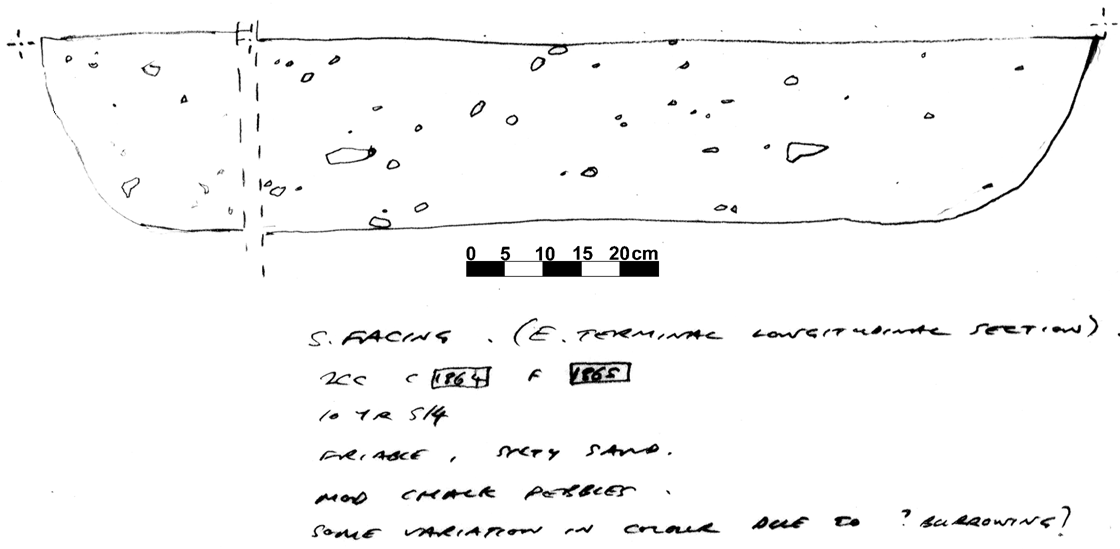 0 5 10 15 20cm
S. FACING . (E. TERMINAL LONGITUDINAL SECTION) .
C 1864 F 1865
10 YR 5/4
FRIABLE , SILTY SAND.
MOD CHALK PEBBLES .
SOME VARIATION IN COLOUR DUE TO ? BURROWING?